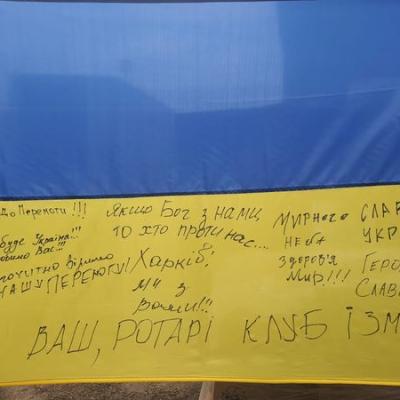 До Перемоги!!!
буде Україна!!!
Вас!!!
віримо
НАШУ ПЕРЕМОГУ!
ЯКЩО БОГ З НАМИ
ТО ХТО ПРОТИ НАС...
Харків!
МИ З
Вами!!!
МИРНОГО
НЕБА
Здоров'я
Мир!!!
СЛАВА
УКР
ГЕРО
СЛАВ
ВАШ, РОТАРІ КЛУБ ІЗМ